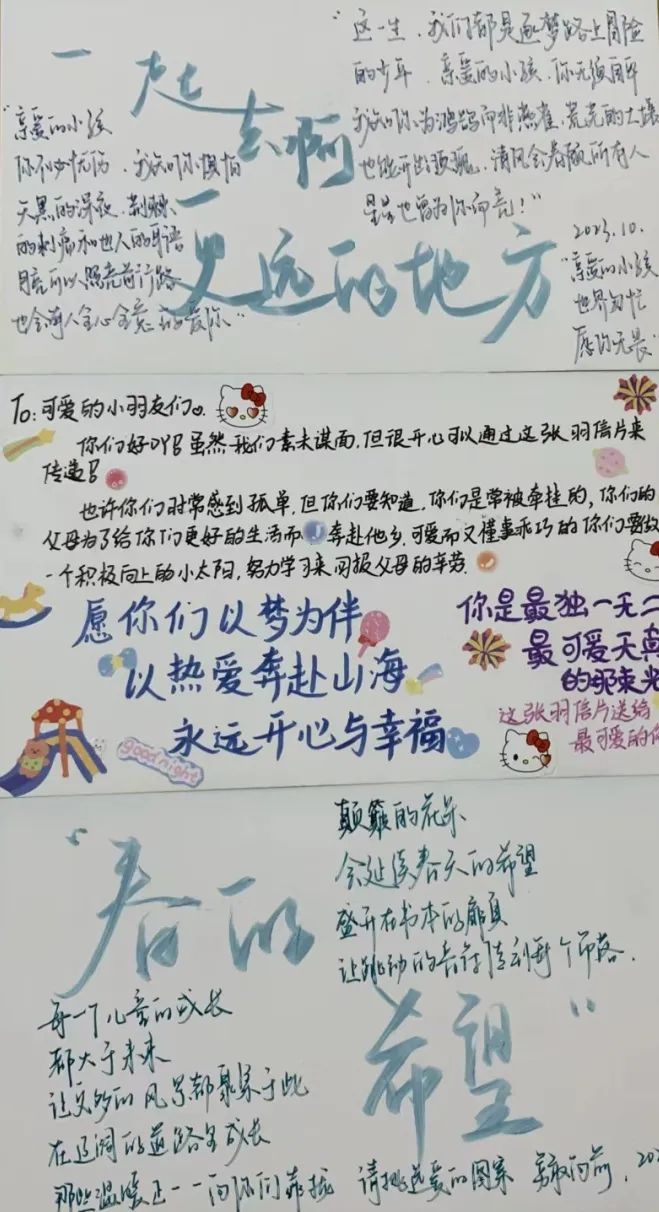 一起去啊
更远的地方
"这一生，我们都是逐梦路上冒险
的少年，亲爱的小孩，你无须自卑
我知你为鸿鹄而非燕雀，荒芜的土壤
也能开出玫瑰，清风会眷顾所有人
星星也曾为你而亮！"
"亲爱的小孩
你不必忧伤，我知你惧怕
天黑的深夜，荆棘
的刺痛和他人的耳语
月亮可以照亮前行路
也会有人全心全意的爱你"
2023.10.
"亲爱的小孩
世界匆忙
愿你无畏"
To：可爱的小羽友们
你们好吖！虽然我们素未谋面，但很开心可以通过这张羽信片来
传递！
也许你们时常感到孤单，但你们要知道，你们是常被牵挂的，你们的
父母为了给你们更好的生活而奔赴他乡，可爱而又懂事乖巧的你们要做
一个积极向上的小太阳，努力学习来回报父母的辛劳.
愿你们以梦为伴
以热爱奔赴山海
永远开心与幸福
你是最独一无二
最可爱天真
的那束光
这张羽信片送给
最可爱的你
goodnight
"春的
希望"
颠簸的花朵
会延续春天的希望
盛开在书本的扉页
让跳动的音符传到每个角落.
每一个儿童的成长
都大于未来
让足够的风景都聚集于此
在辽阔的道路上成长
那些温暖正一一向你们靠拢
请挑选爱的图案 勇敢向前，202